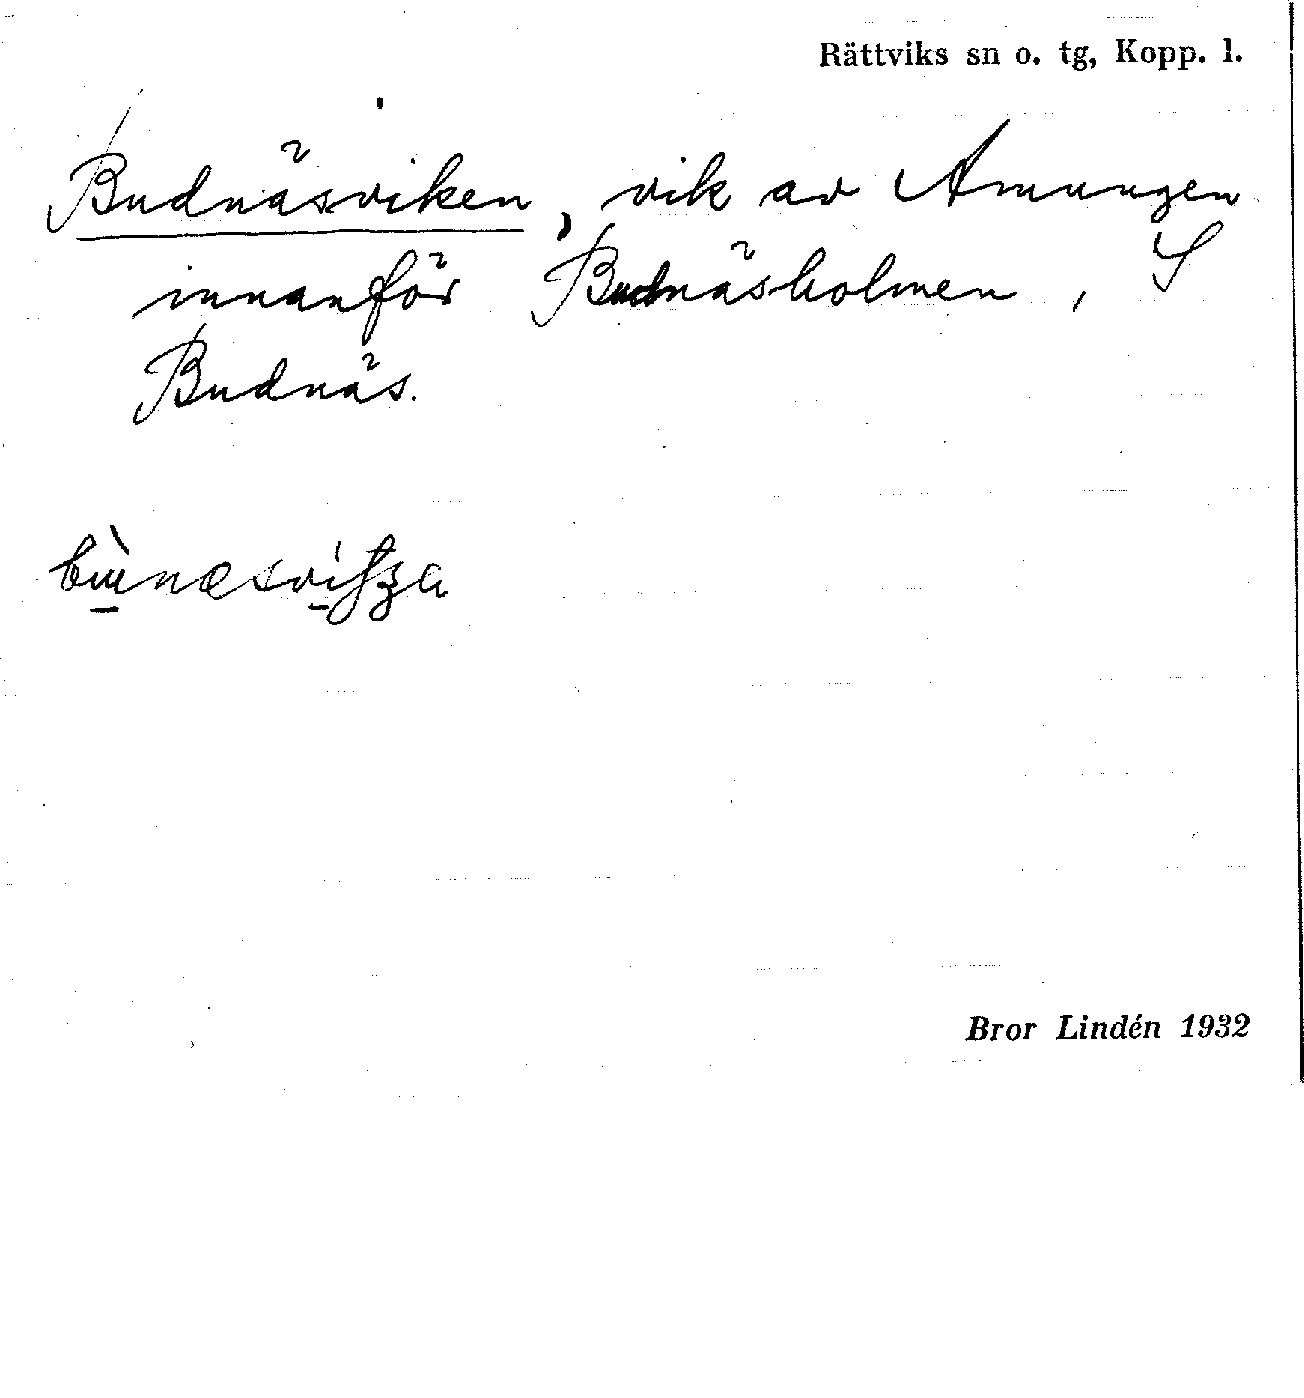 Rättviks sn o. tg, Kopp. l.
Budnäsviken, vik av Amungen
innanför Budnäsholmen, S
Budnäs.
Bror Lindén 1932